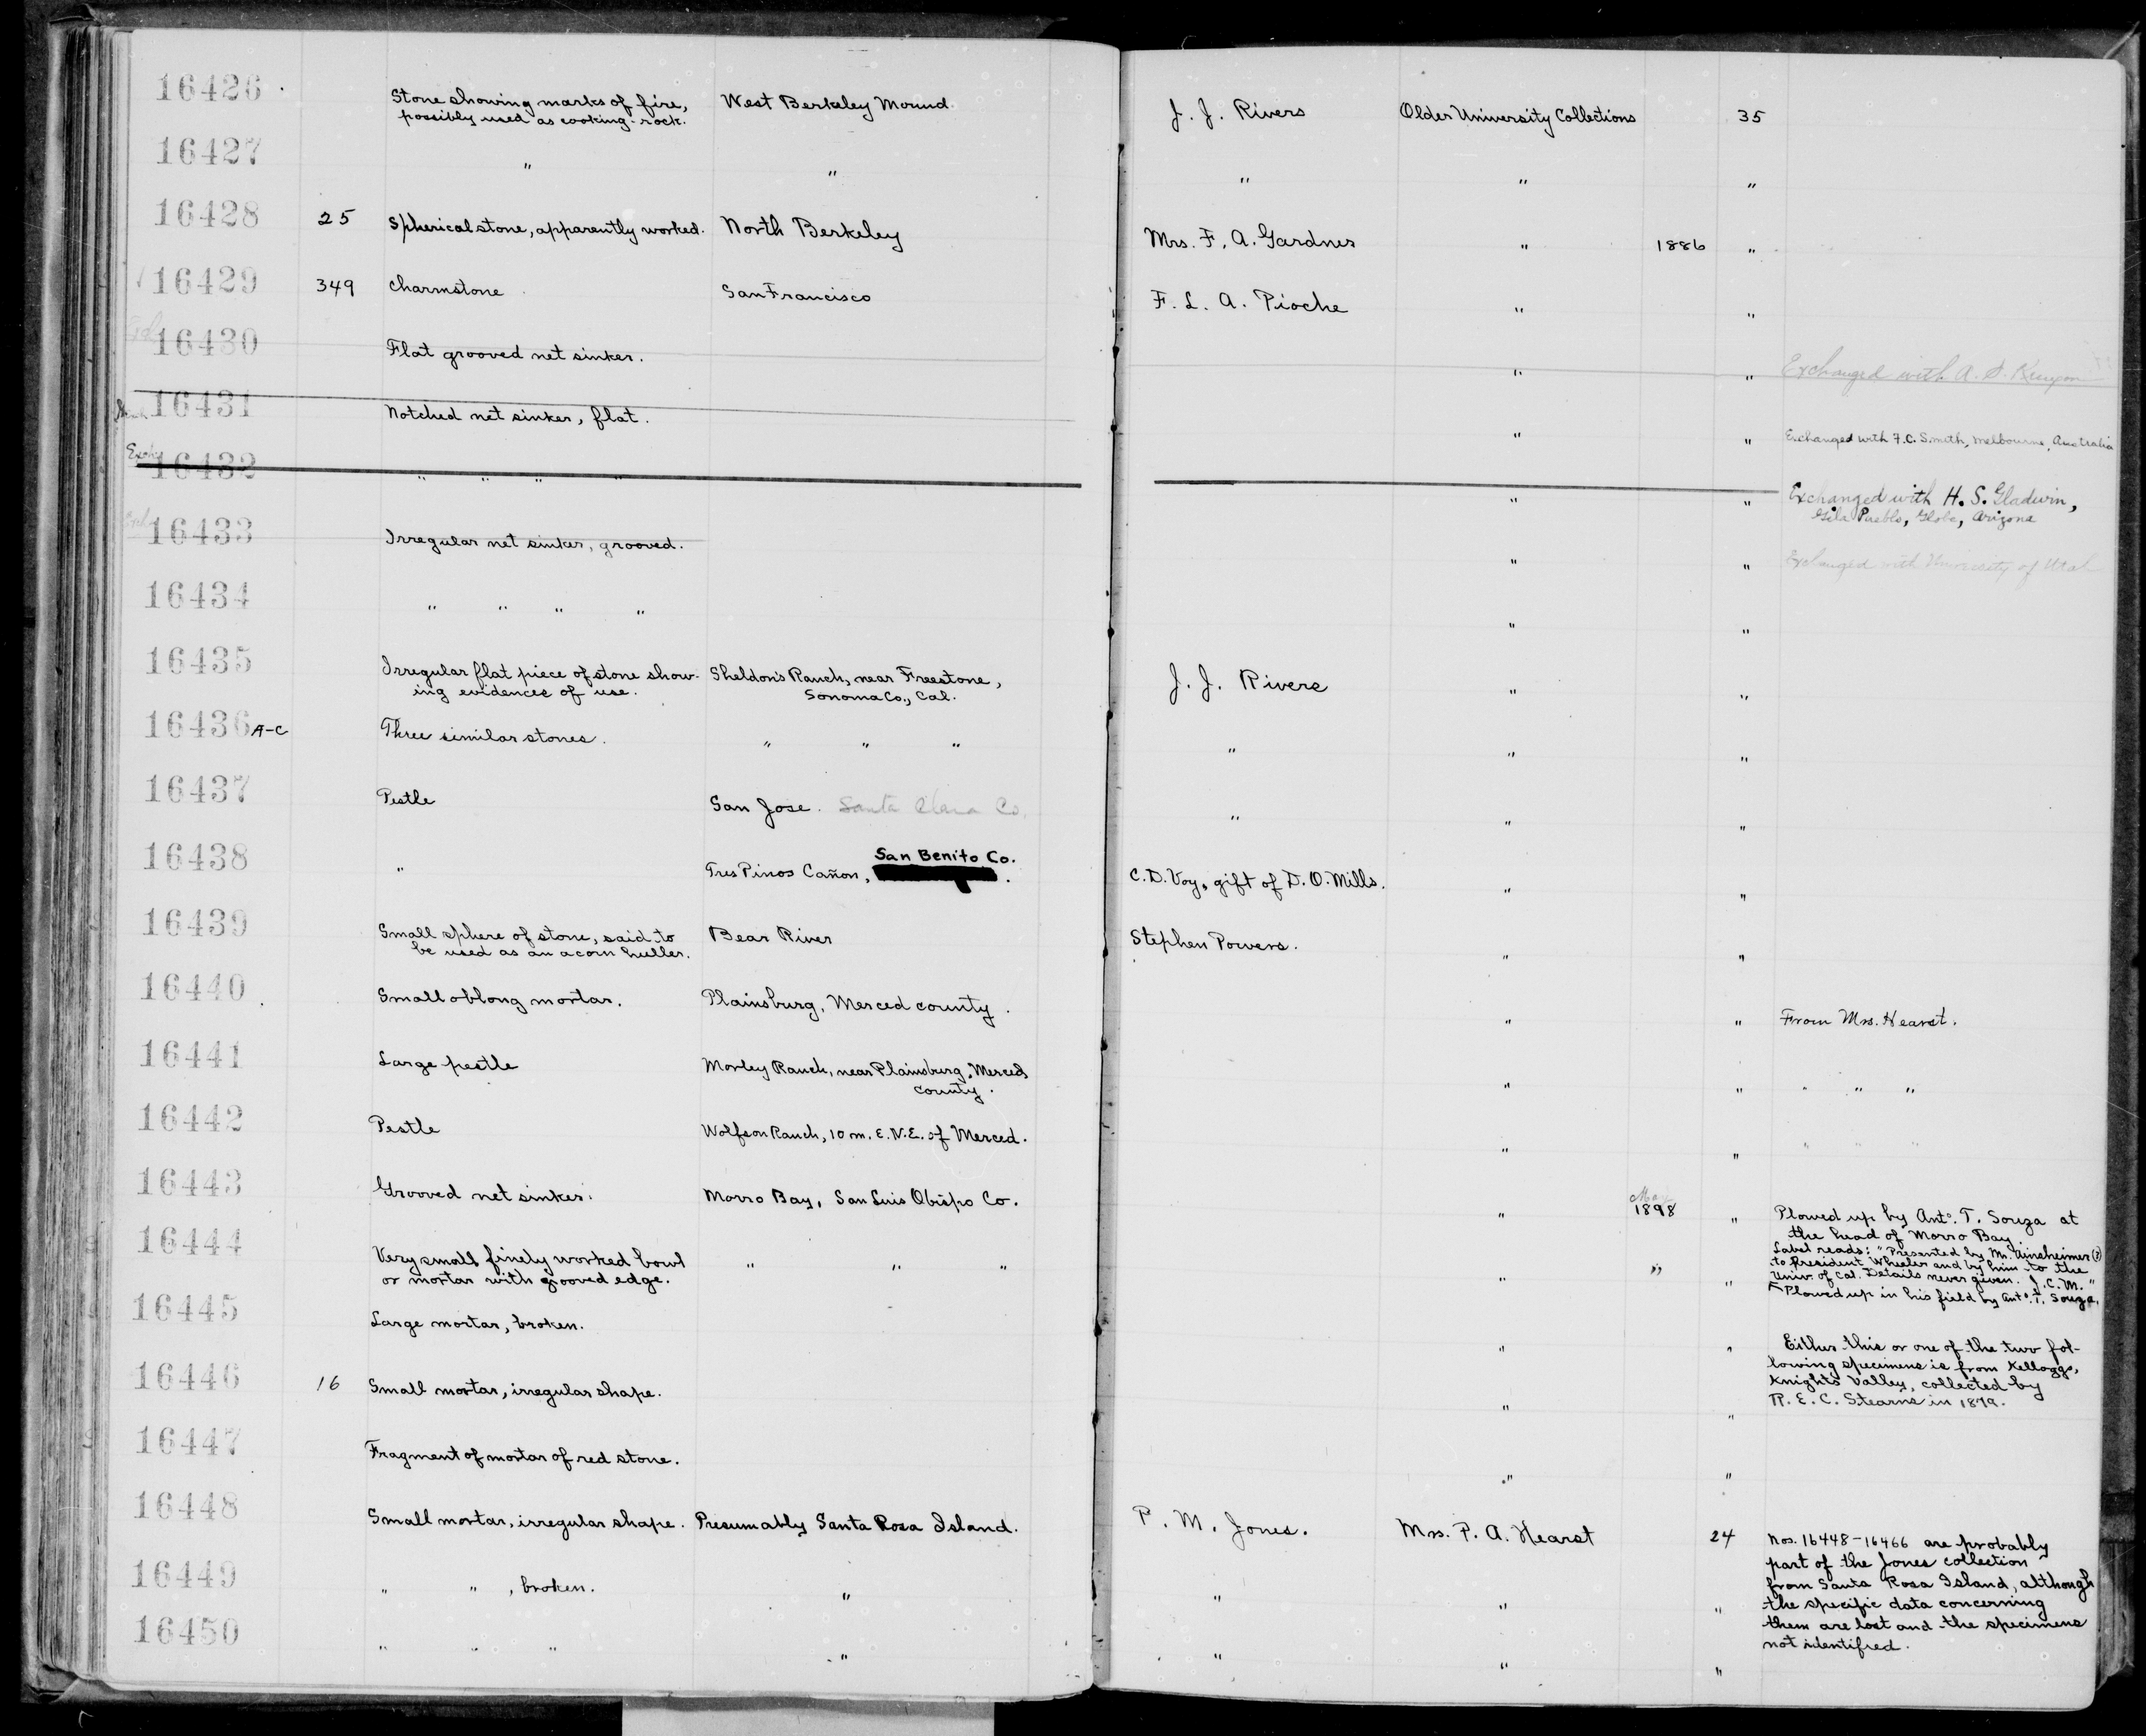 16426 Stone showing marks of fire, West Berkeley Mound. J. J. Rivers Older University Collections 35
possibly used as cooking-rock.
16427 " " " " "
16428 25 Spherical stone, apparently worked. North Berkeley Mrs. F. A. Gardner " 1886 "
16429 349 Charmstone San Francisco F. L. A. Pioche " "
16430 Flat grooved net sinker. " " Exchanged with A. S. Kenyon
16431 Notched net sinker, flat. " " Exchanged with F.C. Smith, Melbourne, Australia
Exch.
16432 " " " " " " Exchanged with H. S. Gladwin,
Gila Pueblo, Globe, Arizona
16433 Irregular net sinker, grooved. " " Exchanged with University of Utah
16434 " " " " " "
16435 Irregular flat piece of stone show- Sheldon's Ranch, near Freestone, J. J. Rivers " "
ing evidences of use. Sonoma Co., Cal.
16436 A-C Three similar stones. " " " " " "
16437 Pestle San Jose. Santa Clara Co. " " "
San Benito Co.
16438 " Tres Pinos Cañon, . C. D. Voy, gift of D. O. Mills. " "
16439 Small sphere of stone, said to Bear River Stephen Powers. " "
be used as an acorn huller.
16440 Small oblong mortar. Plainsburg, Merced county. " " From Mrs. Hearst.
16441 Large pestle Morley Ranch, near Plainsburg, Merced " " " " "
county.
16442 Pestle Wolfson Ranch, 10 m. E.N.E. of Merced. " " " " "
May
16443 Grooved net sinker. Morro Bay, San Luis Obispo Co. " 1898 " Plowed up by Anto. T. Souza at
the head of Morro Bay.
16444 Very small finely worked bowl " " " " " " Label reads: "Presented by Mr. Ainsheimer (?)
or mortar with grooved edge. to President Wheeler and by him to the
Univ. of Cal. Details never given. J. C. M."
Plowed up in his field by Anto. T. Souza.
16445 Large mortar, broken. " " Either this or one of the two fol-
lowing specimens is from Kelloggs,
16446 16 Small mortar, irregular shape. " " Knights Valley, collected by
R. E. C. Stearns in 1879.
16447 Fragment of mortar of red stone. " "
16448 Small mortar, irregular shape. Presumably Santa Rosa Island. P. M. Jones. Mrs. P. A. Hearst 24 Nos. 16448-16466 are probably
part of the Jones collection
16449 " " , broken. " " " " from Santa Rosa Island, although
the specific data concerning
them are lost and the specimens
16450 " " " " " " " not identified.